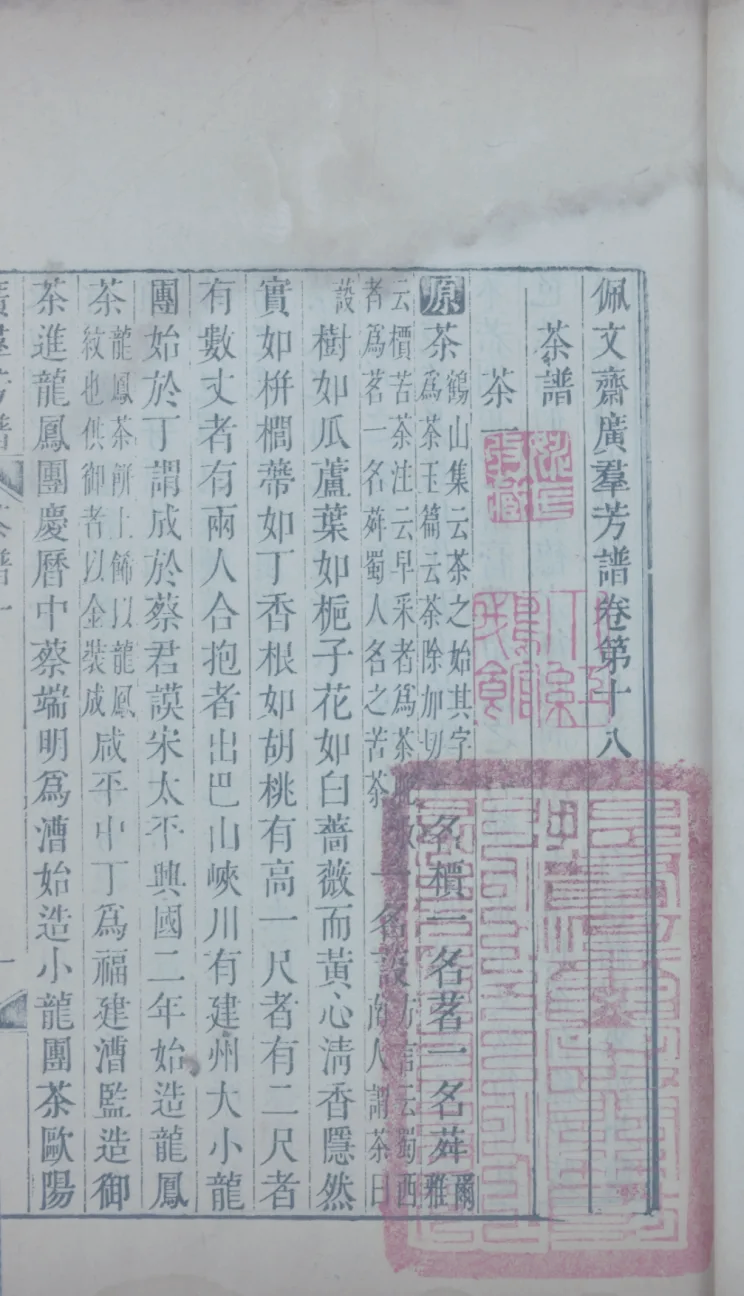 佩文齋廣羣芳譜卷第十八
茶譜
茶一
原茶鶴山集云茶之始其字爲茶玉篇云茶除加切一名價一名茗一名荈爾雅
云價苦茶注云早采者爲茶晚取者爲茗一名荈蜀人名之苦茶一名設方言云蜀西南人謂茶曰
設樹如瓜蘆葉如梔子花如白薔薇而黃心清香隱然
實如栟櫚蒂如丁香根如胡桃有高一尺者有二尺者
有數丈者有兩人合抱者出巴山峽川有建州大小龍
團始於丁謂成於蔡君謨宋太平興國二年始造龍鳳
茶龍鳳茶餅上飾以龍鳳紋也供御者以金裝成咸平中丁爲福建漕監造御
茶進龍鳳團慶曆中蔡端明爲漕始造小龍團茶歐陽